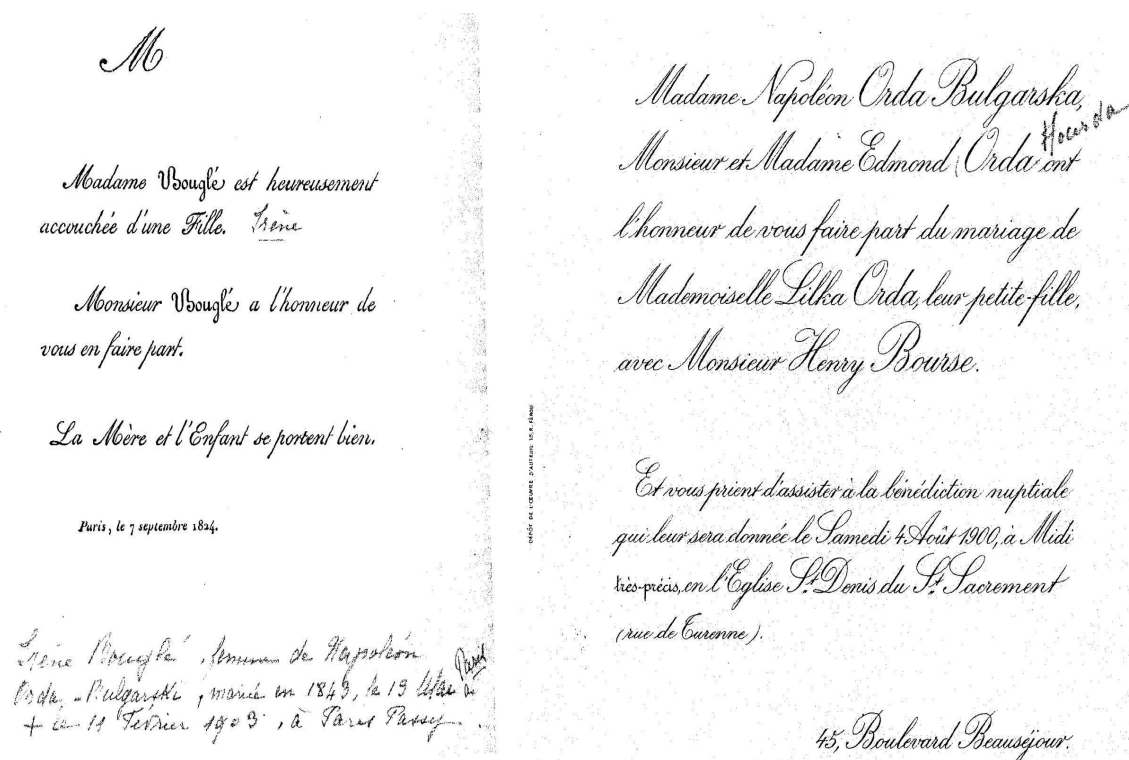 M
Madame Bouglé est heureusement
accouchée d'une Fille. Irène
Monsieur Bouglé a l'honneur de
vous en faire part.
La Mère et l'Enfant se portent bien.
Paris, le 7 septembre 1824.
Irène Bouglé, femme de Napoléon
Orda - Bulgarski, mariée en 1843, le 19 à Paris
+ le 11 Février 1903, à Paris Passy.
DÉPÔT DE L'ŒUVRE D'AUTEUIL
Madame Napoléon Orda Bulgarska,
Monsieur et Madame Edmond (Orda ont
l'honneur de vous faire part du mariage de
Mademoiselle Lilka Orda, leur petite-fille,
avec Monsieur Henry Bourse.
Et vous prient d'assister à la bénédiction nuptiale
qui leur sera donnée le Samedi 4 Août 1900, à Midi
très-précis, en l'Eglise St. Denis du St. Sacrement
(rue de Turenne).
45, Boulevard Beauséjour.